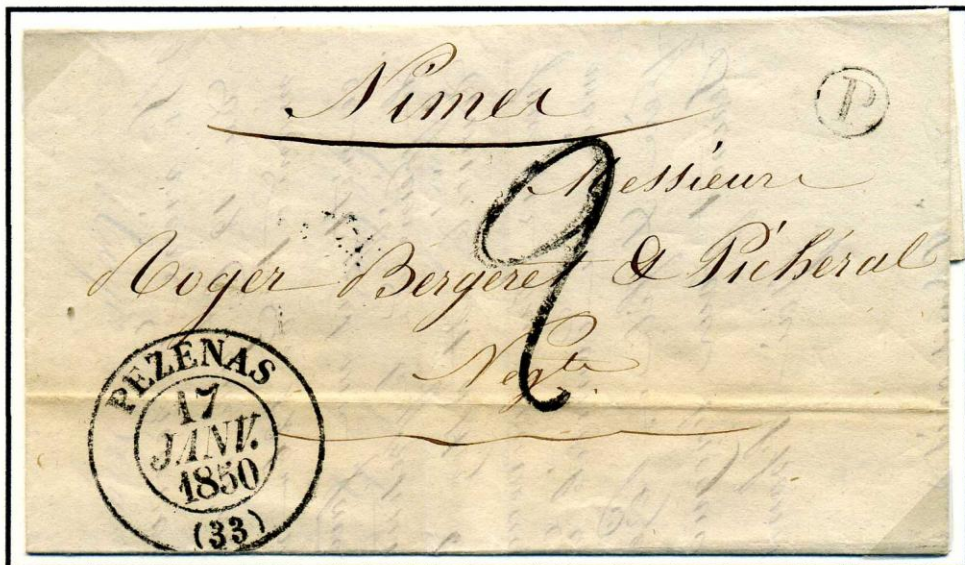 Nimes
P
Messieurs
Roger Bergeret & Pichéral
Negts
2
PEZENAS
17
JANV.
1850
(33)